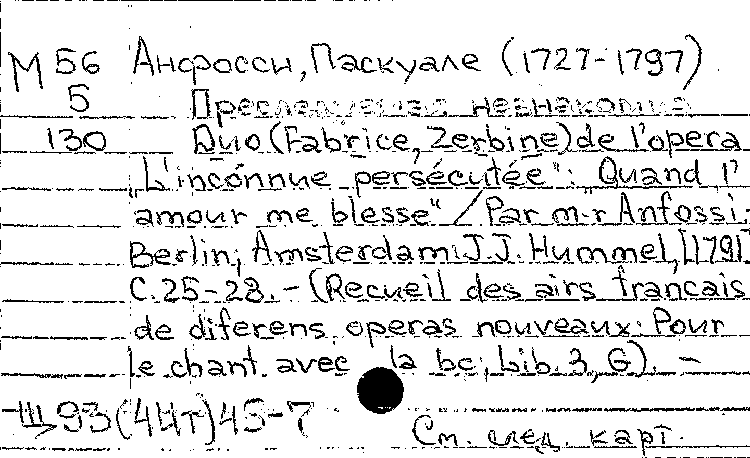 М 56 Анфосси, Паскуале (1727-1797)
5 Преследуемая незнакомка
130 Duo (Fabrice, Zerbine) de l'opera
„L'inconnue persécutée": „Quand l'
amour me blesse" / Par m-r Anfossi.
Berlin; Amsterdam: J.J. Hummel, [1791]
С. 25-28. - (Recueil des airs francais
de diferens operas nouveaux: Pour
le chant avec la bc; Lib. 3, 6). -
Щ93(4Ит)45-7
См. след. карт.